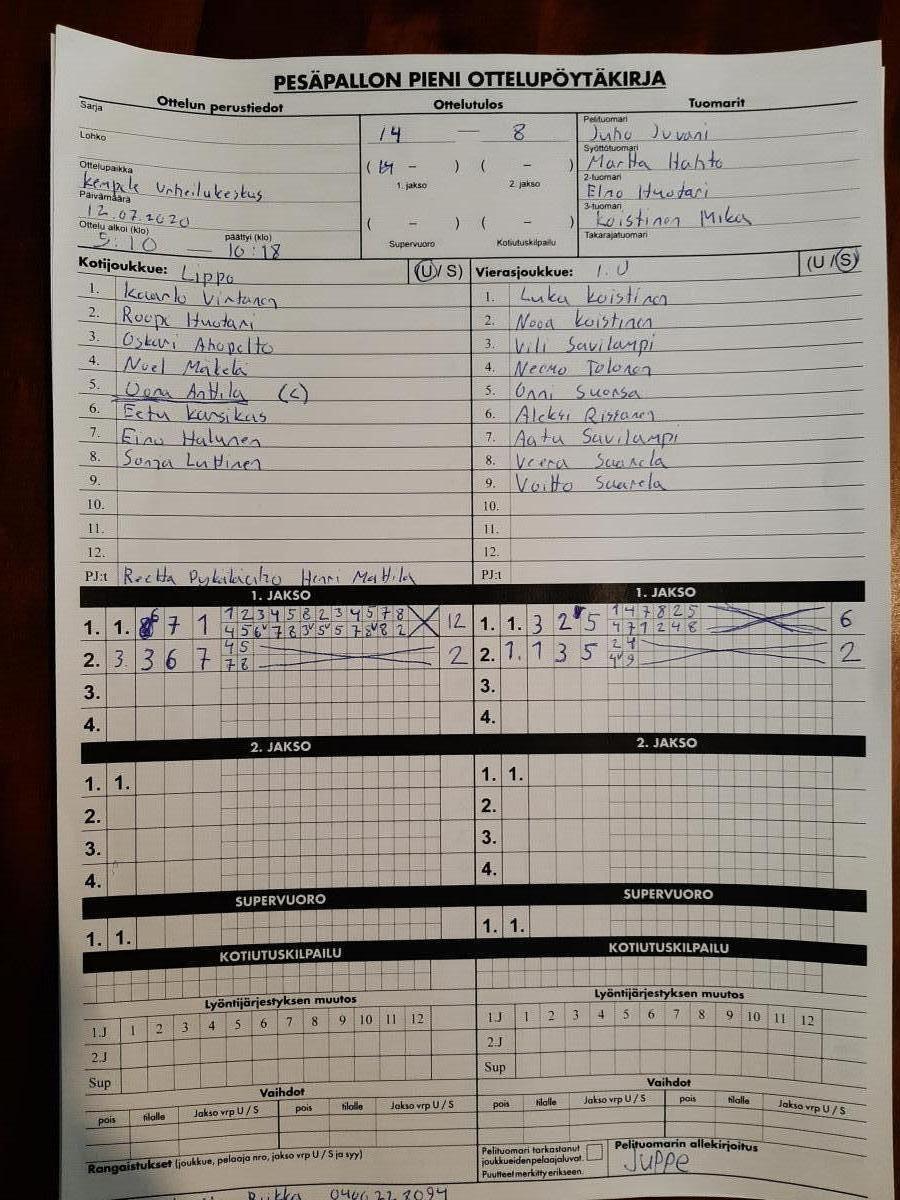 PESÄPALLON PIENI OTTELUPÖYTÄKIRJA
Ottelun perustiedot Ottelutulos Tuomarit
Sarja
Lohko
14 — 8
Pelituomari
Juho Juvani
Syöttötuomari
Martta Hahto
Ottelupaikka
Kempele Urheilukeskus
( 14 - ) ( - )
1. jakso 2. jakso
2-tuomari
Elno Huotari
Päivämäärä
12.07.2020
3-tuomari
Koistinen Mika
Ottelu alkoi (klo) päättyi (klo)
9:10 — 10:18
( - ) ( - )
Supervuoro Kotiutuskilpailu
Takarajatuomari
Kotijoukkue: Lippo (U/S) Vierasjoukkue: 1. U (U/S)
1. Kaarlo Virtanen 1. Luka Koistinen
2. Roope Huotari 2. Nooa Koistinen
3. Oskari Ahopelto 3. Vili Savilampi
4. Nuel Mäkelä 4. Neemo Tolonen
5. Oona Anttila (C) 5. Onni Suorsa
6. Eetu Karsikas 6. Aleksi Rissanen
7. Eino Halunen 7. Aatu Savilampi
8. Sonja Luttinen 8. Veera Saarela
9. 9. Voitto Saarela
10. 10.
11. 11.
12. 12.
PJ:t Henri Mattila PJ:t
1. JAKSO 1. JAKSO
1. 1. 6 7 1 1 2 3 4 5 8 2 3 4 5 7 8 12 1. 1. 3 2 5 1 4 7 8 2 5 6
4 5 6 7 8 3 5 5 7 8 8 2 4 7 1 2 4 8
2. 3. 3 6 7 4 5 2 2. 1. 1 3 5 2 4 2
7 8 4 9
3. 3.
4. 4.
2. JAKSO 2. JAKSO
1. 1. 1. 1.
2. 2.
3. 3.
4. 4.
SUPERVUORO SUPERVUORO
1. 1. 1. 1.
KOTIUTUSKILPAILU KOTIUTUSKILPAILU
Lyöntijärjestyksen muutos Lyöntijärjestyksen muutos
1.J 1 2 3 4 5 6 7 8 9 10 11 12 1.J 1 2 3 4 5 6 7 8 9 10 11 12
2.J 2.J
Sup Sup
Vaihdot Vaihdot
pois tilalle Jakso vrp U / S pois tilalle Jakso vrp U / S pois tilalle Jakso vrp U / S pois tilalle Jakso vrp U / S
Rangaistukset (joukkue, pelaaja nro, jakso vrp U / S ja syy)
Pelituomari tarkastanut
joukkueiden pelaajaluvat.
Puutteet merkitty erikseen.
Pelituomarin allekirjoitus
Juppe